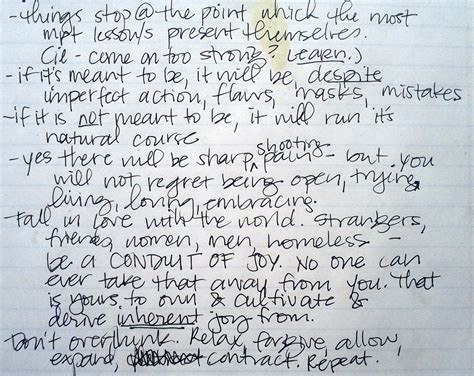 -things stop @ the point which the most
mpt lesson/s present themselves.
(ie - come on too strong? Learn.)
- if it's meant to be, it will be, despite
imperfect action, flaws, masks, mistakes
- if it is not meant to be, it will run it's
natural course
- yes there will be sharp, shooting pain - but you
will not regret being open, trying,
living, loving, embracing.
- Fall in love with the world. Strangers,
friends, women, men, homeless -
be a CONDUIT OF JOY. No one can
ever take that away from you. That
is yours to own & cultivate &
derive inherent joy from.
- Don't overthink. Relax, forgive, allow,
expand, contract. Repeat.